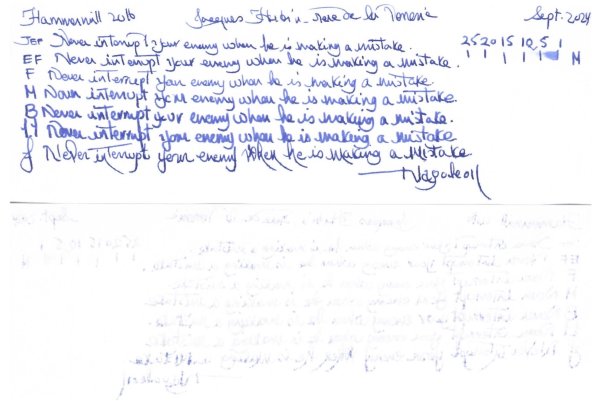 Hammermill 20lb Jacques Herbin rue de la Sept. 2024
JEF Never interrupt your enemy when he is making a mistake.
25 20 15 10 5 1
EF Never interrupt your enemy when he is making a mistake.
N
F Never interrupt your enemy when he is making a mistake.
M Never interrupt your enemy when he is making a mistake.
B Never interrupt your enemy when he is making a mistake.
Never interrupt your enemy when he is making a mistake
f Never interrupt your enemy when he is making a mistake
Napoleon